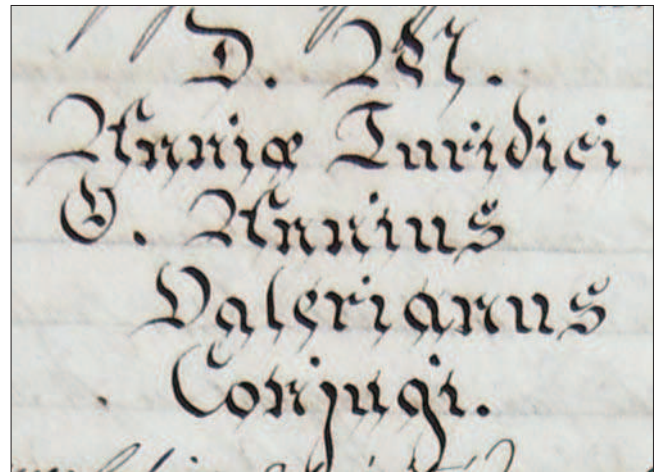 D. M.
Anniæ Juridici
Q. Annius
Valerianus
Conjugi.